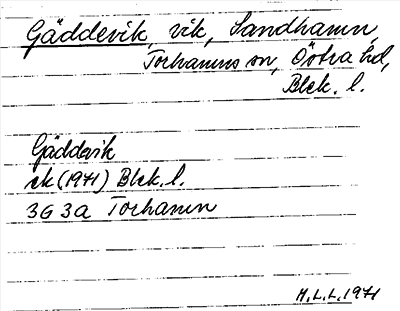 Gäddevik, vik, Sandhamn,
Torhamns sn, Östra hd,
Blek. l.
Gäddevik
ek (1971) Blek. l.
3G 3a Torhamn
H.L.L. 1971